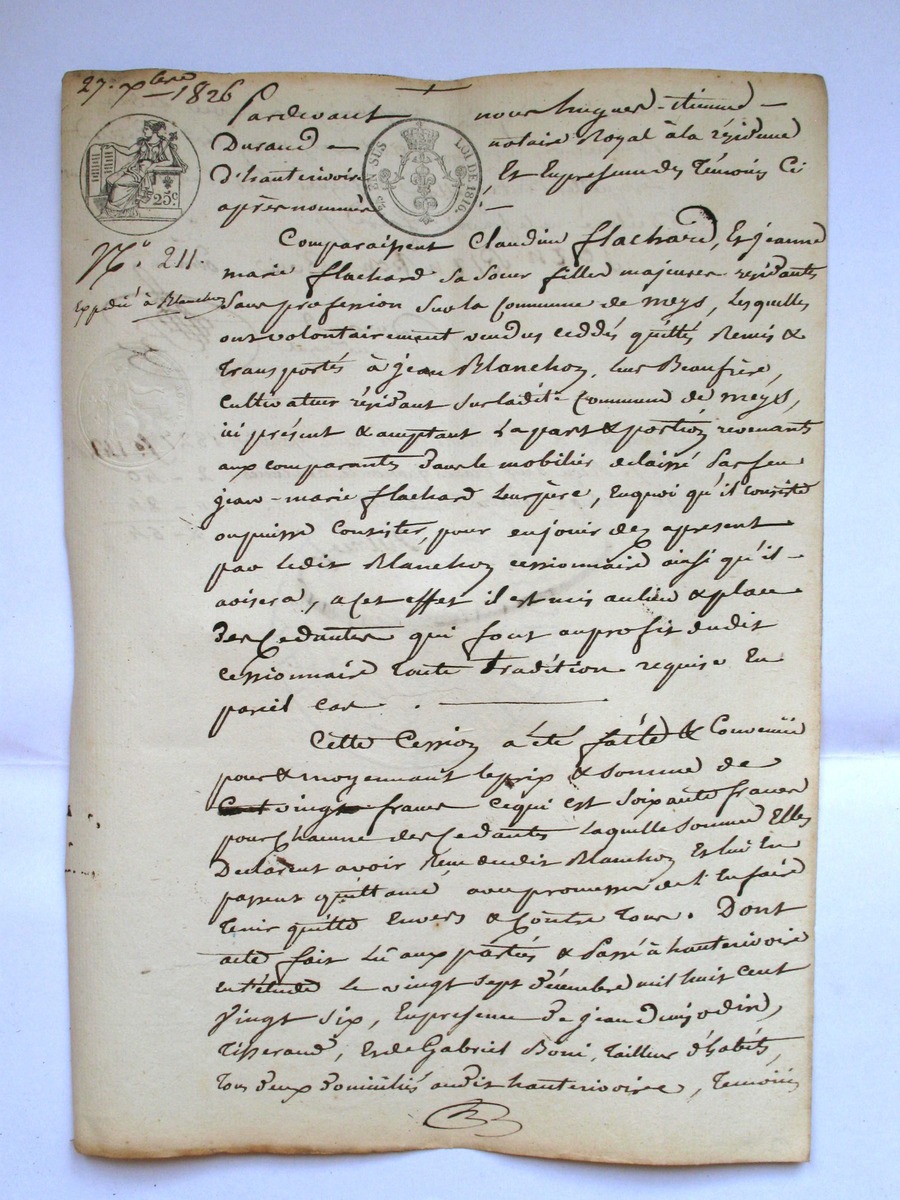 27. xbre 1826
Pardevant nous hugues-étienne
Durand notaire Royal à la résidence
d'hauterivoire Et En présence des Témoins Ci
après nommés
25 EN SUS LOI DE 1816.
25c.
N° 211.
Expédié à Blanchon
Comparaissent Claudine flachard, Et jeanne
marie flachard sa soeur filles majeures résidantes
sans profession sur la Commune de meys, Lesquelles
ont volontairement vendus ceddés quittés Remis &
transportés à jean Blanchon, leur Beaufrère,
cultivateur résidant sur ladite Commune de meys,
ici présent & acceptant La part & portion revenants
aux comparantes dans le mobilier délaissé par feu
jean-marie flachard Leur père, En quoi qu'il consiste
ou puisse Consister, pour en jouir dez apresent
par ledit Blanchon cessionnaire ainsi qu'il
avisera, a cet effet il est mis au lieu & place
des Cedantes qui font au profit dudit
cessionnaire toute tradition requise En
pareil cas.
Cette Cession a été faite & Convenüe
pour & moyennant le prix & somme de
Cent vingt francs ce qui est soixante francs
pour Chacune des Cedantes Laquelle somme Elles
Déclarent avoir Reçu dudit Blanchon Et lui En
passent quittance, avec promesse de l'En faire
Tenir quitte Envers & Contre Tous. Dont
acte fait Lû aux parties & passé à hauterivoire
en l'étude Le vingt sept décembre mil huit cent
Vingt six, En présence de jean
Tisserand, Et de Gabriel Boni, tailleur d'habits,
Tous deux domiciliés audit hauterivoire, Témoins